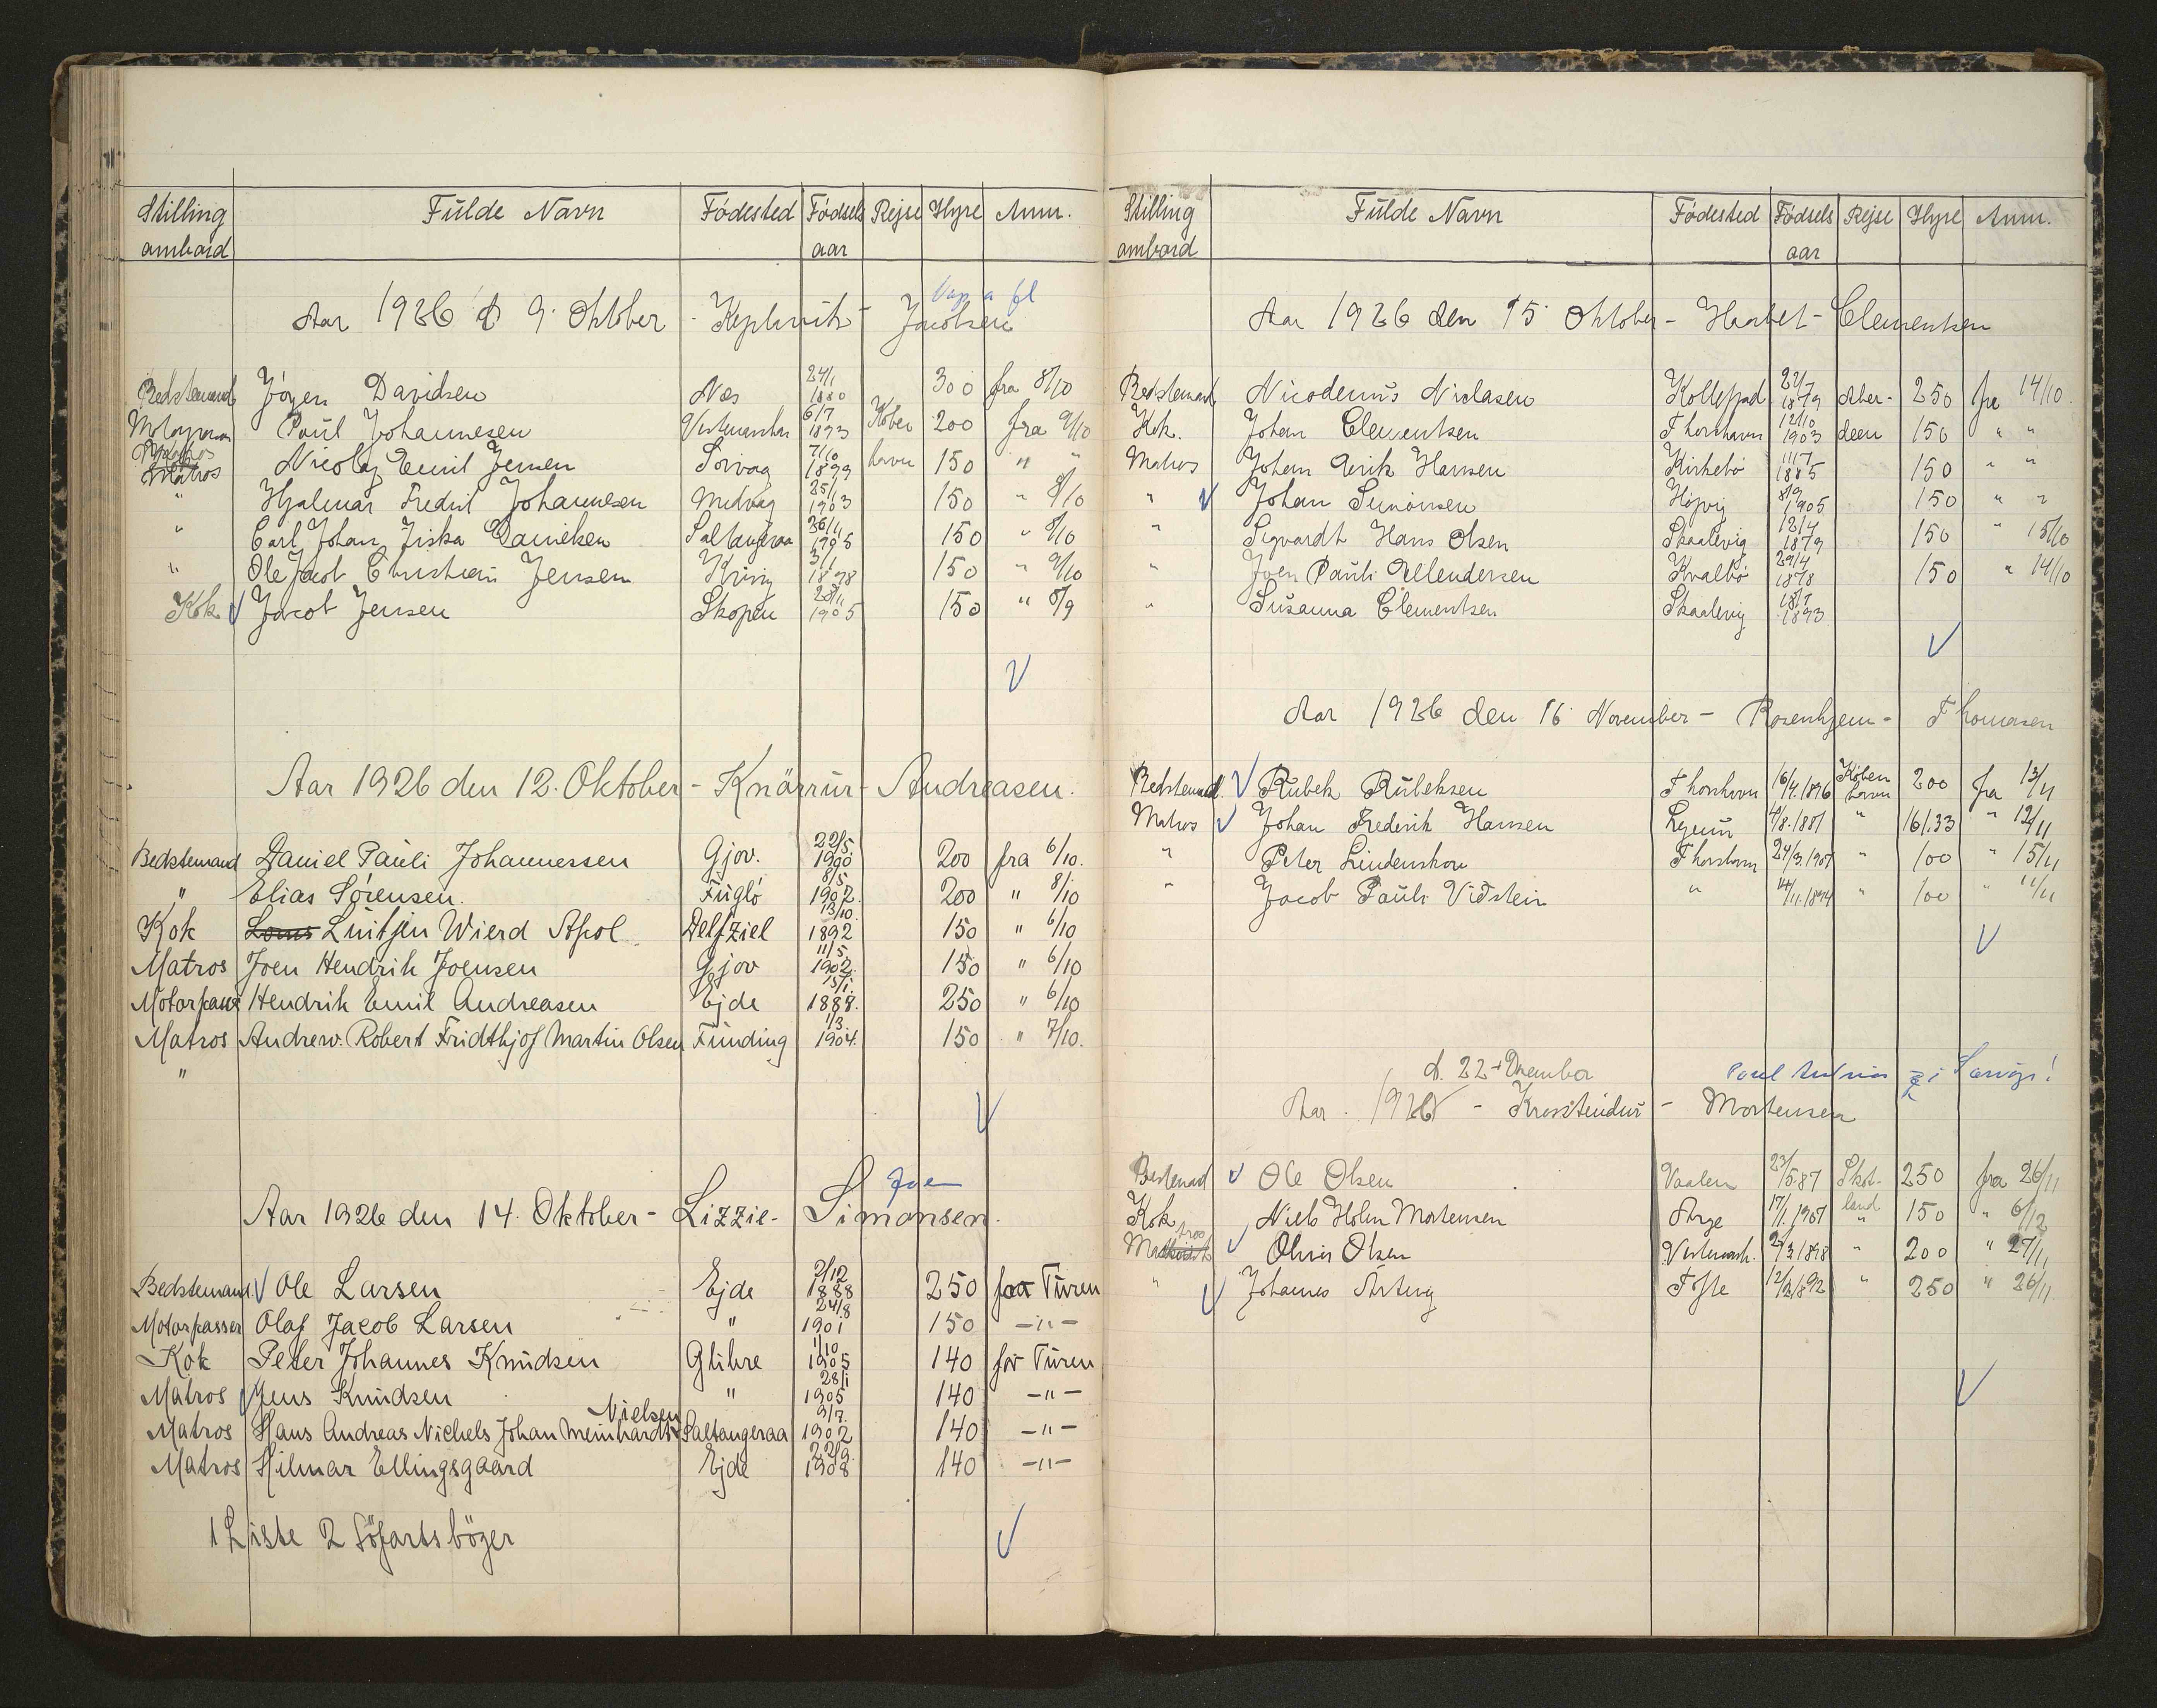 Stilling Fulde Navn Födested Födsels Rejse Hyre Anm.
ombord aar
Vapa fl
Aar 1926 d 9. Oktober - Keplavik - Jacobsen
Bedstemand Jögen Davidsen Næs 24/1 1880 300 fra 8/10
Motorpasser Paul Johannesen Vestmanhav 6/7 1893 Köben 200 fra 9/10
Matros Nicolaj Emil Jensen Sörvaag 7/10 1899 havn 150 " "
" Hjalmar Fredrik Johannesen Midvaag 25/1 1903 150 " 8/10
" Carl Johan Ziska Danielsen Saltangeraa 26/11 1905 150 " 8/10
" Ole Jacob Christian Jensen Kvivig 3/1 1898 150 " 9/10
Kok Jacob Jensen Skopen 1905 150 " 8/9
Aar 1926 den 12. Oktober - Knörrur - Andreasen.
Bedstemand Daniel Pauli Johannessen Gjov. 22/5 1900 200 fra 6/10.
" Elias Sörensen. Fuglö 8/5 1902. 200 " 8/10
Kok Luitjen Wierd Apol Delfziel 13/10. 1892 150 " 6/10
Matros Joen Hendrik Joensen Gjov 11/5 1902. 150 " 6/10
Motorpasser Hendrik Emil Andreasen Ejde 15/1. 1888. 250 " 6/10
Matros Andrew. Robert Fridthjof Martin Olsen Funding 1/3 1904. 150 " 7/10.
"
Joe
Aar 1926 den 14. Oktober - Lizzie - Simonsen.
Bedstemand. Ole Larsen Ejde 2/12 1888 250 for Turen
Motorpasser Olaf Jacob Larsen " 24/8 1901 150 -"-
Kok Peter Johannes Knudsen Glibre 1/10 1905 140 for Turen
Matros Jens Knudsen " 28/1 1905 140 -"-
Nielsen
Matros Hans Andreas Nichels Johan Meinhardt Saltangeraa 9/7. 1902 140 -"-
Matros Hilmar Ellingsgaard Ejde 22/9. 1908 140 -"-
1 Liste 2 Söfartsböger
Stilling Fulde Navn Födested Födsels Rejse Hyre Anm.
ombord aar
Aar 1926 den 15. Oktober - Haabet - Clementsen
Bedstemand Nicodemus Niclasen Kollefjord 1879 Aber- 250 fra 14/10.
Kok. Johan Clementsen Thorshavn 12/10 1903 deen 150 " "
Matros Johan Erik Hansen Kirkebö 11/7 1885 150 " "
" Johan Simonsen Höjvig 8/9 1905 150 " "
" Sigvardt Hans Olsen Skaalevig 12/4 1879 150 " 15/10
" Joen Pauli Ellendersen Kvalbö 29/4 1878 150 " 14/10
" Susanna Clementsen Skaalevig 1893
Aar 1926 den 16. November - Rosenhjem - Thomasen
Bedstemand. Rubek Rubeksen Thorshavn 16/4.1896 Köbenhavn 200 fra 13/11
Matros Johan Frederik Hansen Lyeum 4/8.1881 " 161.33 " 12/11
" Peter Lindenskov Thorshavn 24/3.1907 " 100 " 15/11
" Jacob Pauli Vidstein " 14/11.1894 " 100 " 11/11
d. 22 December
Aar 1926 - Krosstindur - Mortensen
Bestmand Ole Olsen Vaalen 23/5.87 Skot- 250 fra 26/11
Kok Niels Holm Mortensen Arge 17/1.1907 land 150 " 6/12
Matros Oliver Olsen Vestmanh. 2/3 1898 " 200 " 27/11
" Johannes Arting Tofte 12/2/892 " 250 " 26/11